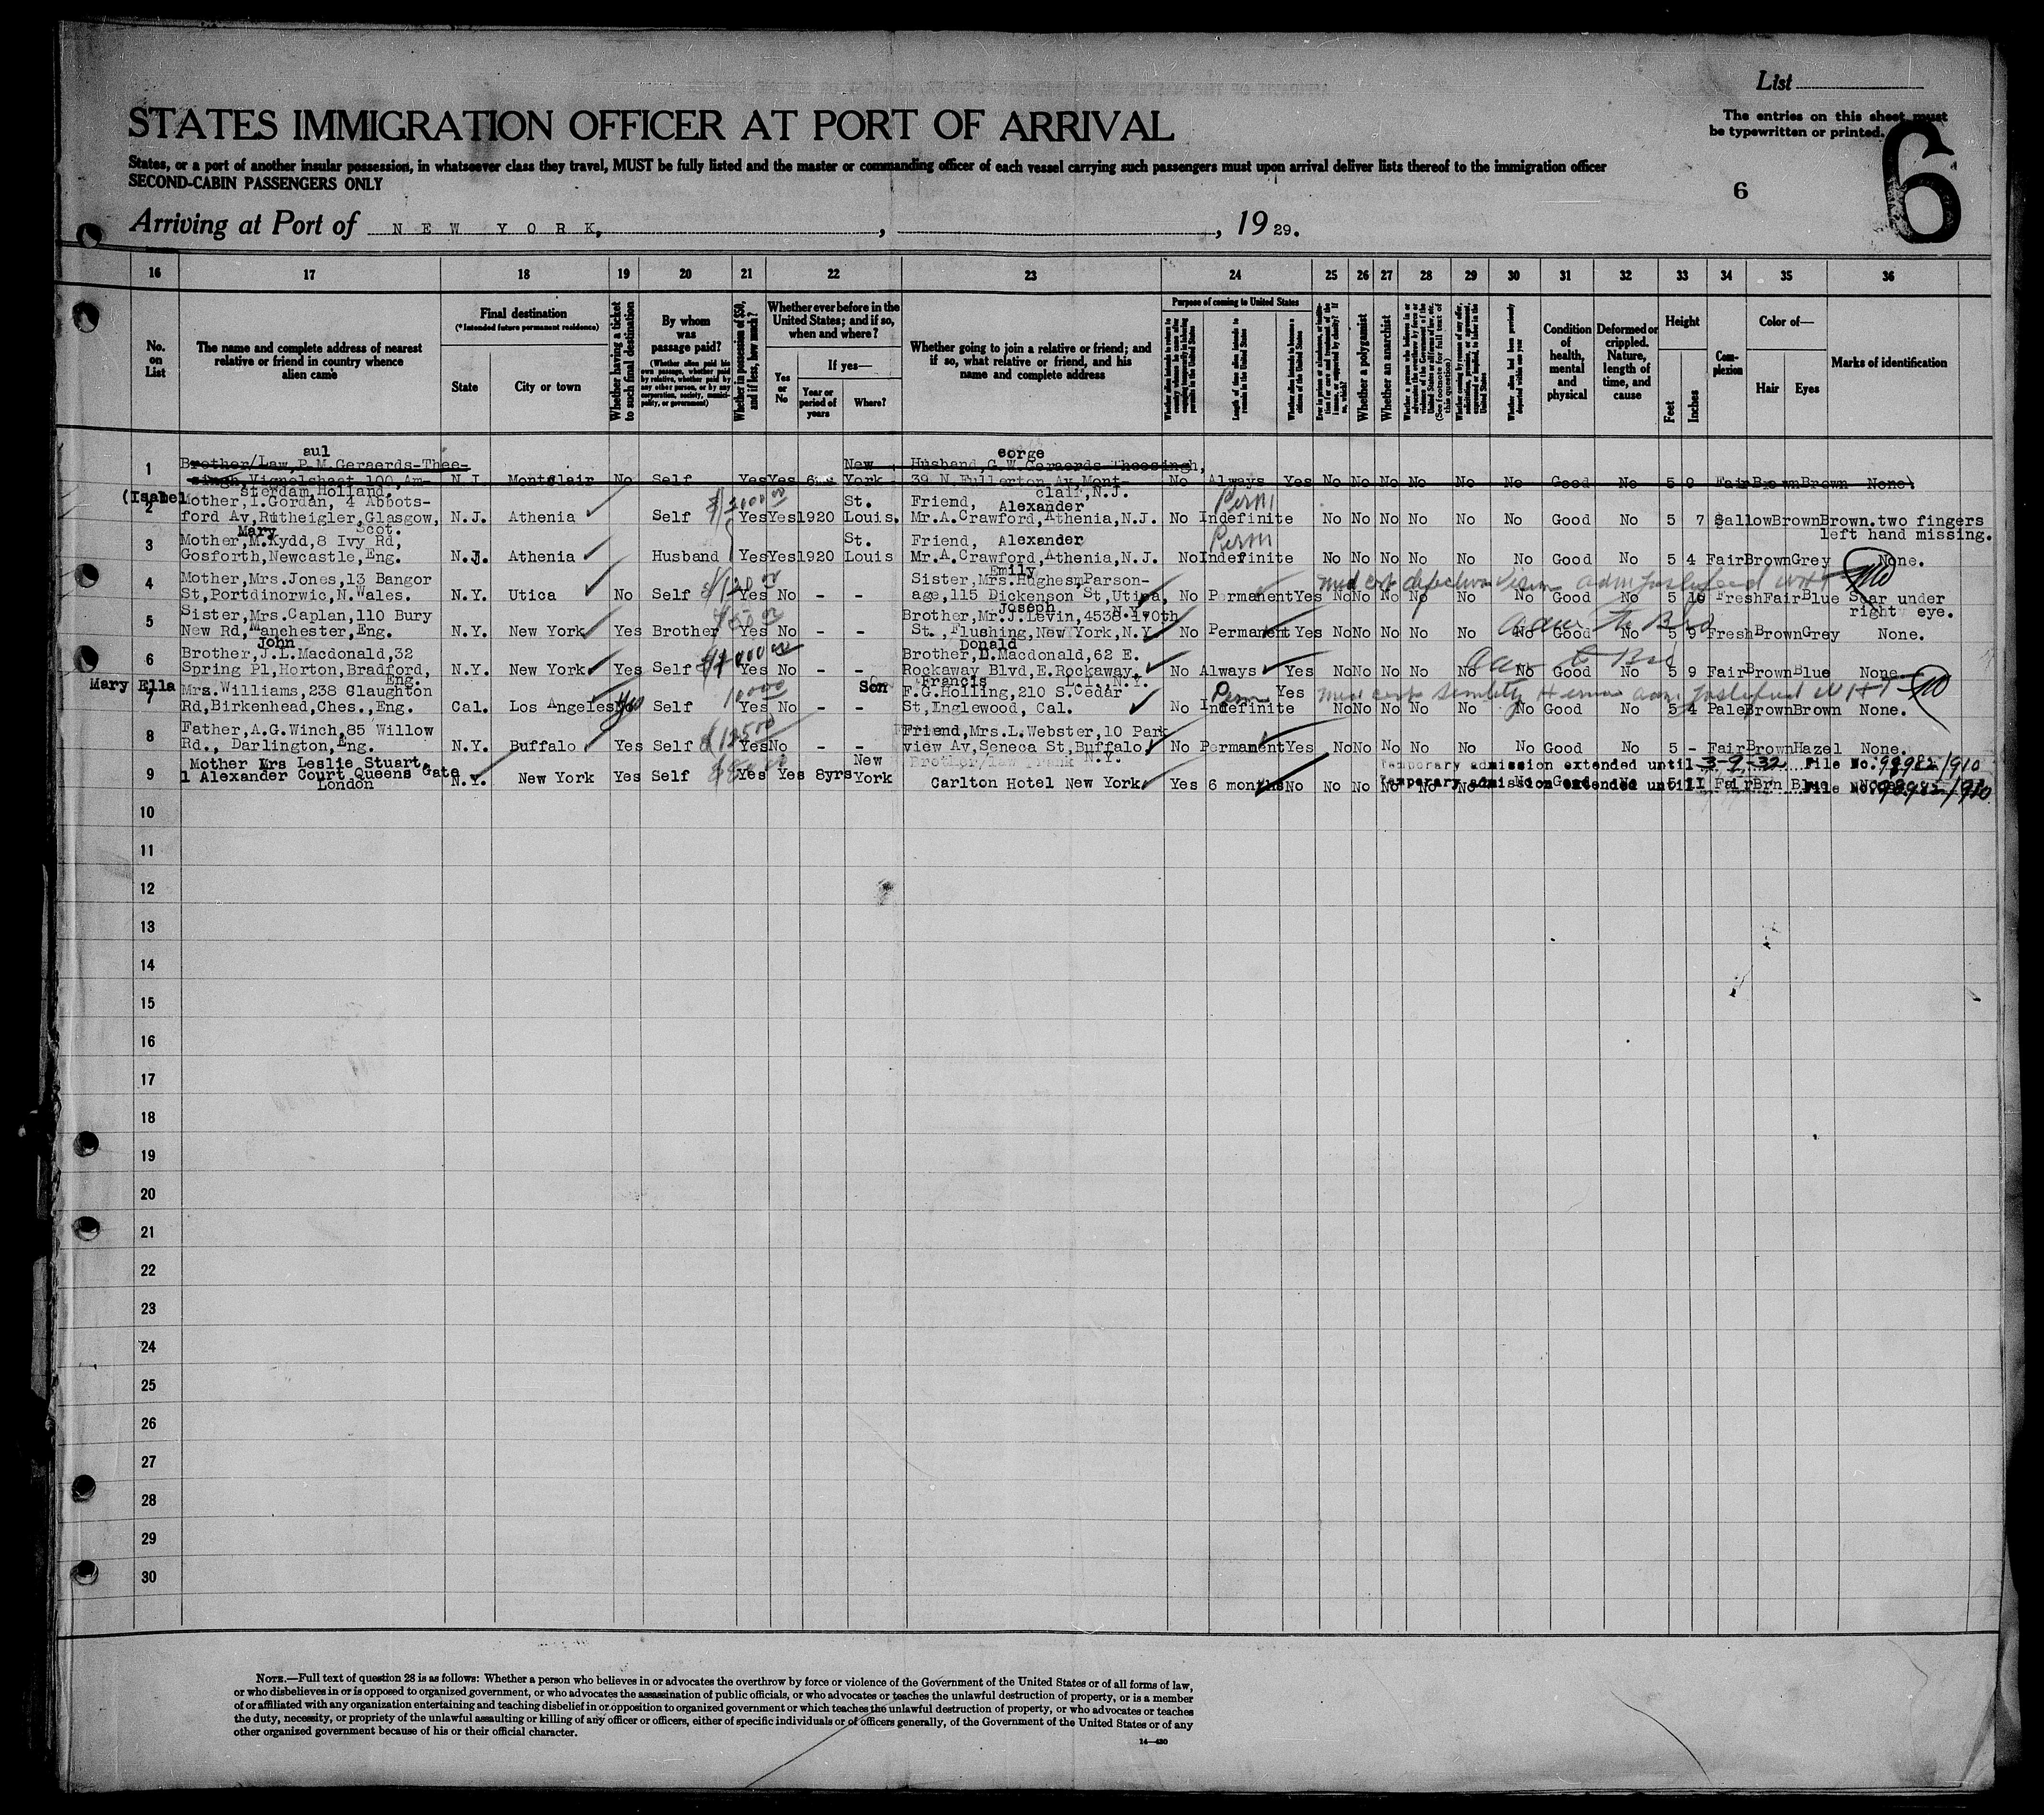 List
The entries on this sheet must
be typewritten or printed.
STATES IMMIGRATION OFFICER AT PORT OF ARRIVAL
6
States, or a port of another insular possession, in whatsoever class they travel, MUST be fully listed and the master or commanding officer of each vessel carrying such passengers must upon arrival deliver lists thereof to the immigration officer
SECOND-CABIN PASSENGERS ONLY
6
Arriving at Port of NEW YORK, , , 19 29.
16 17 18 19 20 21 22 23 24 25 26 27 28 29 30 31 32 33 34 35 36
No. on List
The name and complete address of nearest relative or friend in country whence alien came
Final destination
(*Intended future permanent residence)
State
City or town
Whether having a ticket to such final destination
By whom was passage paid?
(Whether alien paid his own passage, whether paid by relative, whether paid by any other person, or by any corporation, society, municipality, or government)
Whether in possession of $50, and if less, how much?
Whether ever before in the United States; and if so, when and where?
Yes or No
If yes—
Year or period of years
Where?
Whether going to join a relative or friend; and if so, what relative or friend, and his name and complete address
Purpose of coming to United States
Length of time alien intends to remain in the United States
Whether alien intends to become a citizen of the United States
Whether a polygamist
Whether an anarchist
Condition of health, mental and physical
Deformed or crippled. Nature, length of time, and cause
Height
Feet
Inches
Complexion
Color of—
Hair
Eyes
Marks of identification
aul
eorge
1 Brother/Law, P.M. Geraerds-Thee-
New Husband, G.W. Geraerds Theesingh,
singh, Vignolshaat 100, Am- N.J. Montclair No Self Yes Yes York 39 N. Fullerton Av, Mont- No Always Yes No No No No No No Good No 5 9 Fair Brown Brown None
sterdam, Holland.
clair, N.J.
(Isabel
2 Mother, I. Gordan, 4 Abbots-
$2000 00 St. Friend, Alexander Perm
ford Av, Rutheigler, Glasgow, N.J. Athenia Self Yes Yes 1920 Louis. Mr. A. Crawford, Athenia, N.J. No Indefinite No No No No No No Good No 5 7 Sallow Brown Brown. two fingers
Scot.
left hand missing.
Mary
3 Mother, M. Kydd, 8 Ivy Rd,
St. Friend, Alexander Perm
Gosforth, Newcastle, Eng. N.J. Athenia Husband Yes Yes 1920 Louis Mr. A. Crawford, Athenia, N.J. No Indefinite No No No No No No Good No 5 4 Fair Brown Grey None.
Emily
4 Mother, Mrs. Jones, 13 Bangor
$120 00 Sister, Mrs. Hughes, Parson-
med cert defective vision
St, Portdinorwic, N. Wales. N.Y. Utica No Self Yes No - - age, 115 Dickenson St, Utica, No Permanent Yes No No No No No No Good No 5 10 Fresh Fair Blue Scar under
N.Y.
right eye.
Joseph
5 Sister, Mrs. Caplan, 110 Bury
Brother, Mr. J. Levin, 4538-170th
New Rd, Manchester, Eng. N.Y. New York Yes Brother Yes No - - St., Flushing, New York, N.Y. No Permanent Yes No No No No No No Good No 5 9 Fresh Brown Grey None.
adm to Bro
John
Donald
6 Brother, J.L. Macdonald, 32
Brother, D. Macdonald, 62 E.
Spring Pl, Horton, Bradford, N.Y. New York Yes Self Yes No - - Rockaway Blvd, E. Rockaway, No Always Yes No No No No No No Good No 5 9 Fair Brown Blue None
Eng.
L.I., N.Y.
adm to Bro
Mary Ella
Son Francis
7 Mrs. Williams, 238 Claughton
F.G. Holling, 210 S. Cedar Perm Yes
Rd, Birkenhead, Ches., Eng. Cal. Los Angeles Yes Self Yes No - - St, Inglewood, Cal. No Indefinite No No No No No No Good No 5 4 Pale Brown Brown None.
med cert senility
8 Father, A.G. Winch, 85 Willow
$125 00 Friend, Mrs. L. Webster, 10 Park
Rd., Darlington, Eng. N.Y. Buffalo Yes Self Yes No - - view Av, Seneca St, Buffalo, No Permanent Yes No No No No No No Good No 5 - Fair Brown Hazel None.
N.Y.
Mother Mrs Leslie Stuart,
New Brother/law Frank
Temporary admission extended until 3-9-32 File No. 98982/910
9 1 Alexander Court Queens Gate N.Y. New York Yes Self Yes Yes 8yrs York Carlton Hotel New York Yes 6 months No No No No No No No Good No 5 11 Fair Brn Blue
London
Temporary admission extended until File No. 98982/910
10
11
12
13
14
15
16
17
18
19
20
21
22
23
24
25
26
27
28
29
30
NOTE.—Full text of question 28 is as follows: Whether a person who believes in or advocates the overthrow by force or violence of the Government of the United States or of all forms of law,
or who disbelieves in or is opposed to organized government, or who advocates the assassination of public officials, or who advocates or teaches the unlawful destruction of property, or is a member
of or affiliated with any organization entertaining and teaching disbelief in or opposition to organized government or which teaches the unlawful destruction of property, or who advocates or teaches
the duty, necessity, or propriety of the unlawful assaulting or killing of any officer or officers, either of specific individuals or of officers generally, of the Government of the United States or of any
other organized government because of his or their official character.
14—430